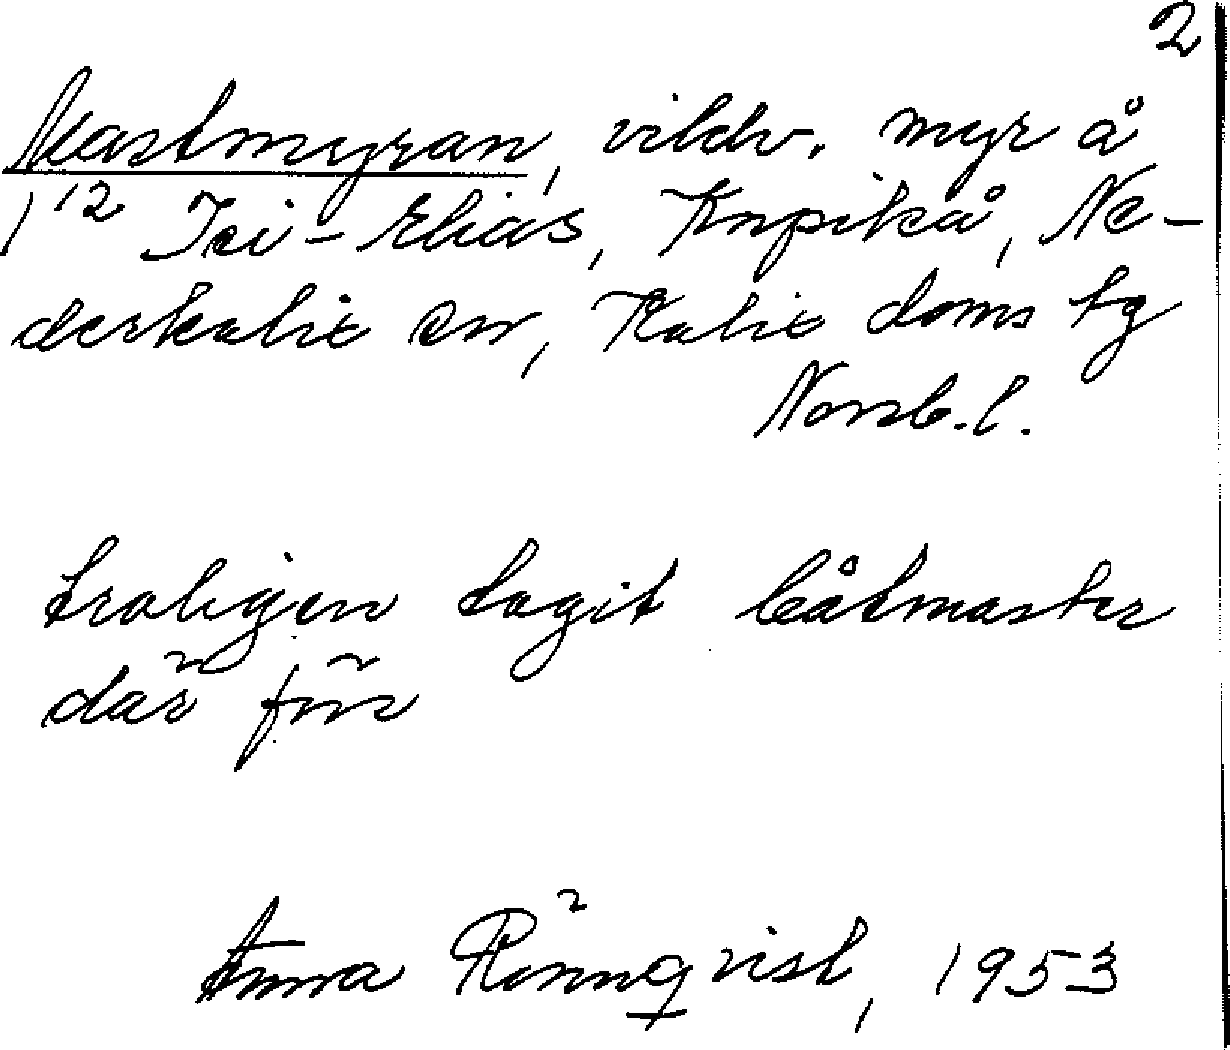 2
Mastmyran, vildv. myr å
1¹² Isi-Elias, Knpikå, Ne-
derkalix sn, Kalix doms tg
Norrb.l.
troligen tagit båtmaster
där förr
Anna Rönnqvist, 1953